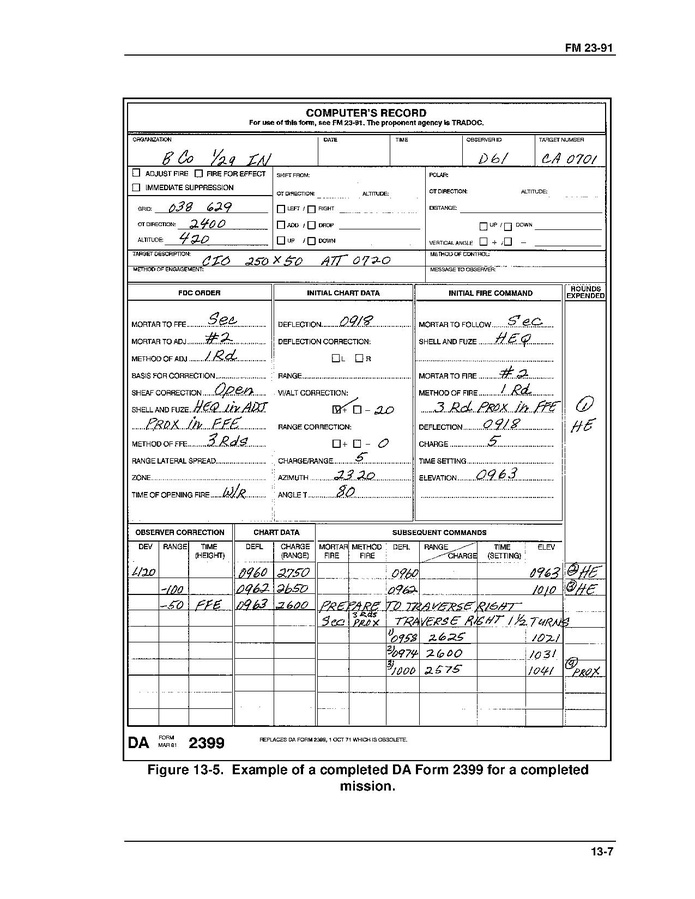 FM 23-91
COMPUTER'S RECORD
For use of this form, see FM 23-91. The proponent agency is TRADOC.
ORGANIZATION DATE TIME OBSERVER ID TARGET NUMBER
B Co 1/29 IN D61 CA 0701
ADJUST FIRE FIRE FOR EFFECT SHIFT FROM: POLAR:
IMMEDIATE SUPPRESSION
OT DIRECTION: ALTITUDE: OT DIRECTION: ALTITUDE:
GRID: 038 629 LEFT / RIGHT DISTANCE:
OT DIRECTION: 2400 ADD / DROP UP / DOWN
ALTITUDE: 420 UP / DOWN VERTICAL ANGLE + / -
TARGET DESCRIPTION: CIO 250 X 50 ATT 0720 METHOD OF CONTROL:
METHOD OF ENGAGEMENT: MESSAGE TO OBSERVER:
FDC ORDER INITIAL CHART DATA INITIAL FIRE COMMAND ROUNDS EXPENDED
MORTAR TO FFE Sec DEFLECTION 0918 MORTAR TO FOLLOW Sec
MORTAR TO ADJ #2 DEFLECTION CORRECTION: SHELL AND FUZE HEQ
METHOD OF ADJ 1 Rd L R
BASIS FOR CORRECTION RANGE MORTAR TO FIRE #2
SHEAF CORRECTION Open V/ALT CORRECTION: METHOD OF FIRE 1 Rd
SHELL AND FUZE HEQ in ADJ + - 20 3 Rd PROX in FFE 1
PROX in FFE RANGE CORRECTION: DEFLECTION 0918 HE
METHOD OF FFE 3 Rds + - 0 CHARGE 5
RANGE LATERAL SPREAD CHARGE/RANGE 5 TIME SETTING
ZONE AZIMUTH 2320 ELEVATION 0963
TIME OF OPENING FIRE W/R ANGLE T 80
OBSERVER CORRECTION CHART DATA SUBSEQUENT COMMANDS
DEV RANGE TIME (HEIGHT) DEFL CHARGE (RANGE) MORTAR FIRE METHOD FIRE DEFL RANGE CHARGE TIME (SETTING) ELEV
L120 0960 2750 0960 0963 2 HE
-100 0962 2650 0962 1010 3 HE
-50 FFE 0963 2600 PREPARE TO TRAVERSE RIGHT
Sec 3 Rds PROX TRAVERSE RIGHT 1 1/2 TURNS
1) 0958 2625 1021
2) 0974 2600 1031
3) 1000 2575 1041 9 PROX
DA FORM MAR 81 2399 REPLACES DA FORM 2399, 1 OCT 71 WHICH IS OBSOLETE.
Figure 13-5. Example of a completed DA Form 2399 for a completed
mission.
13-7